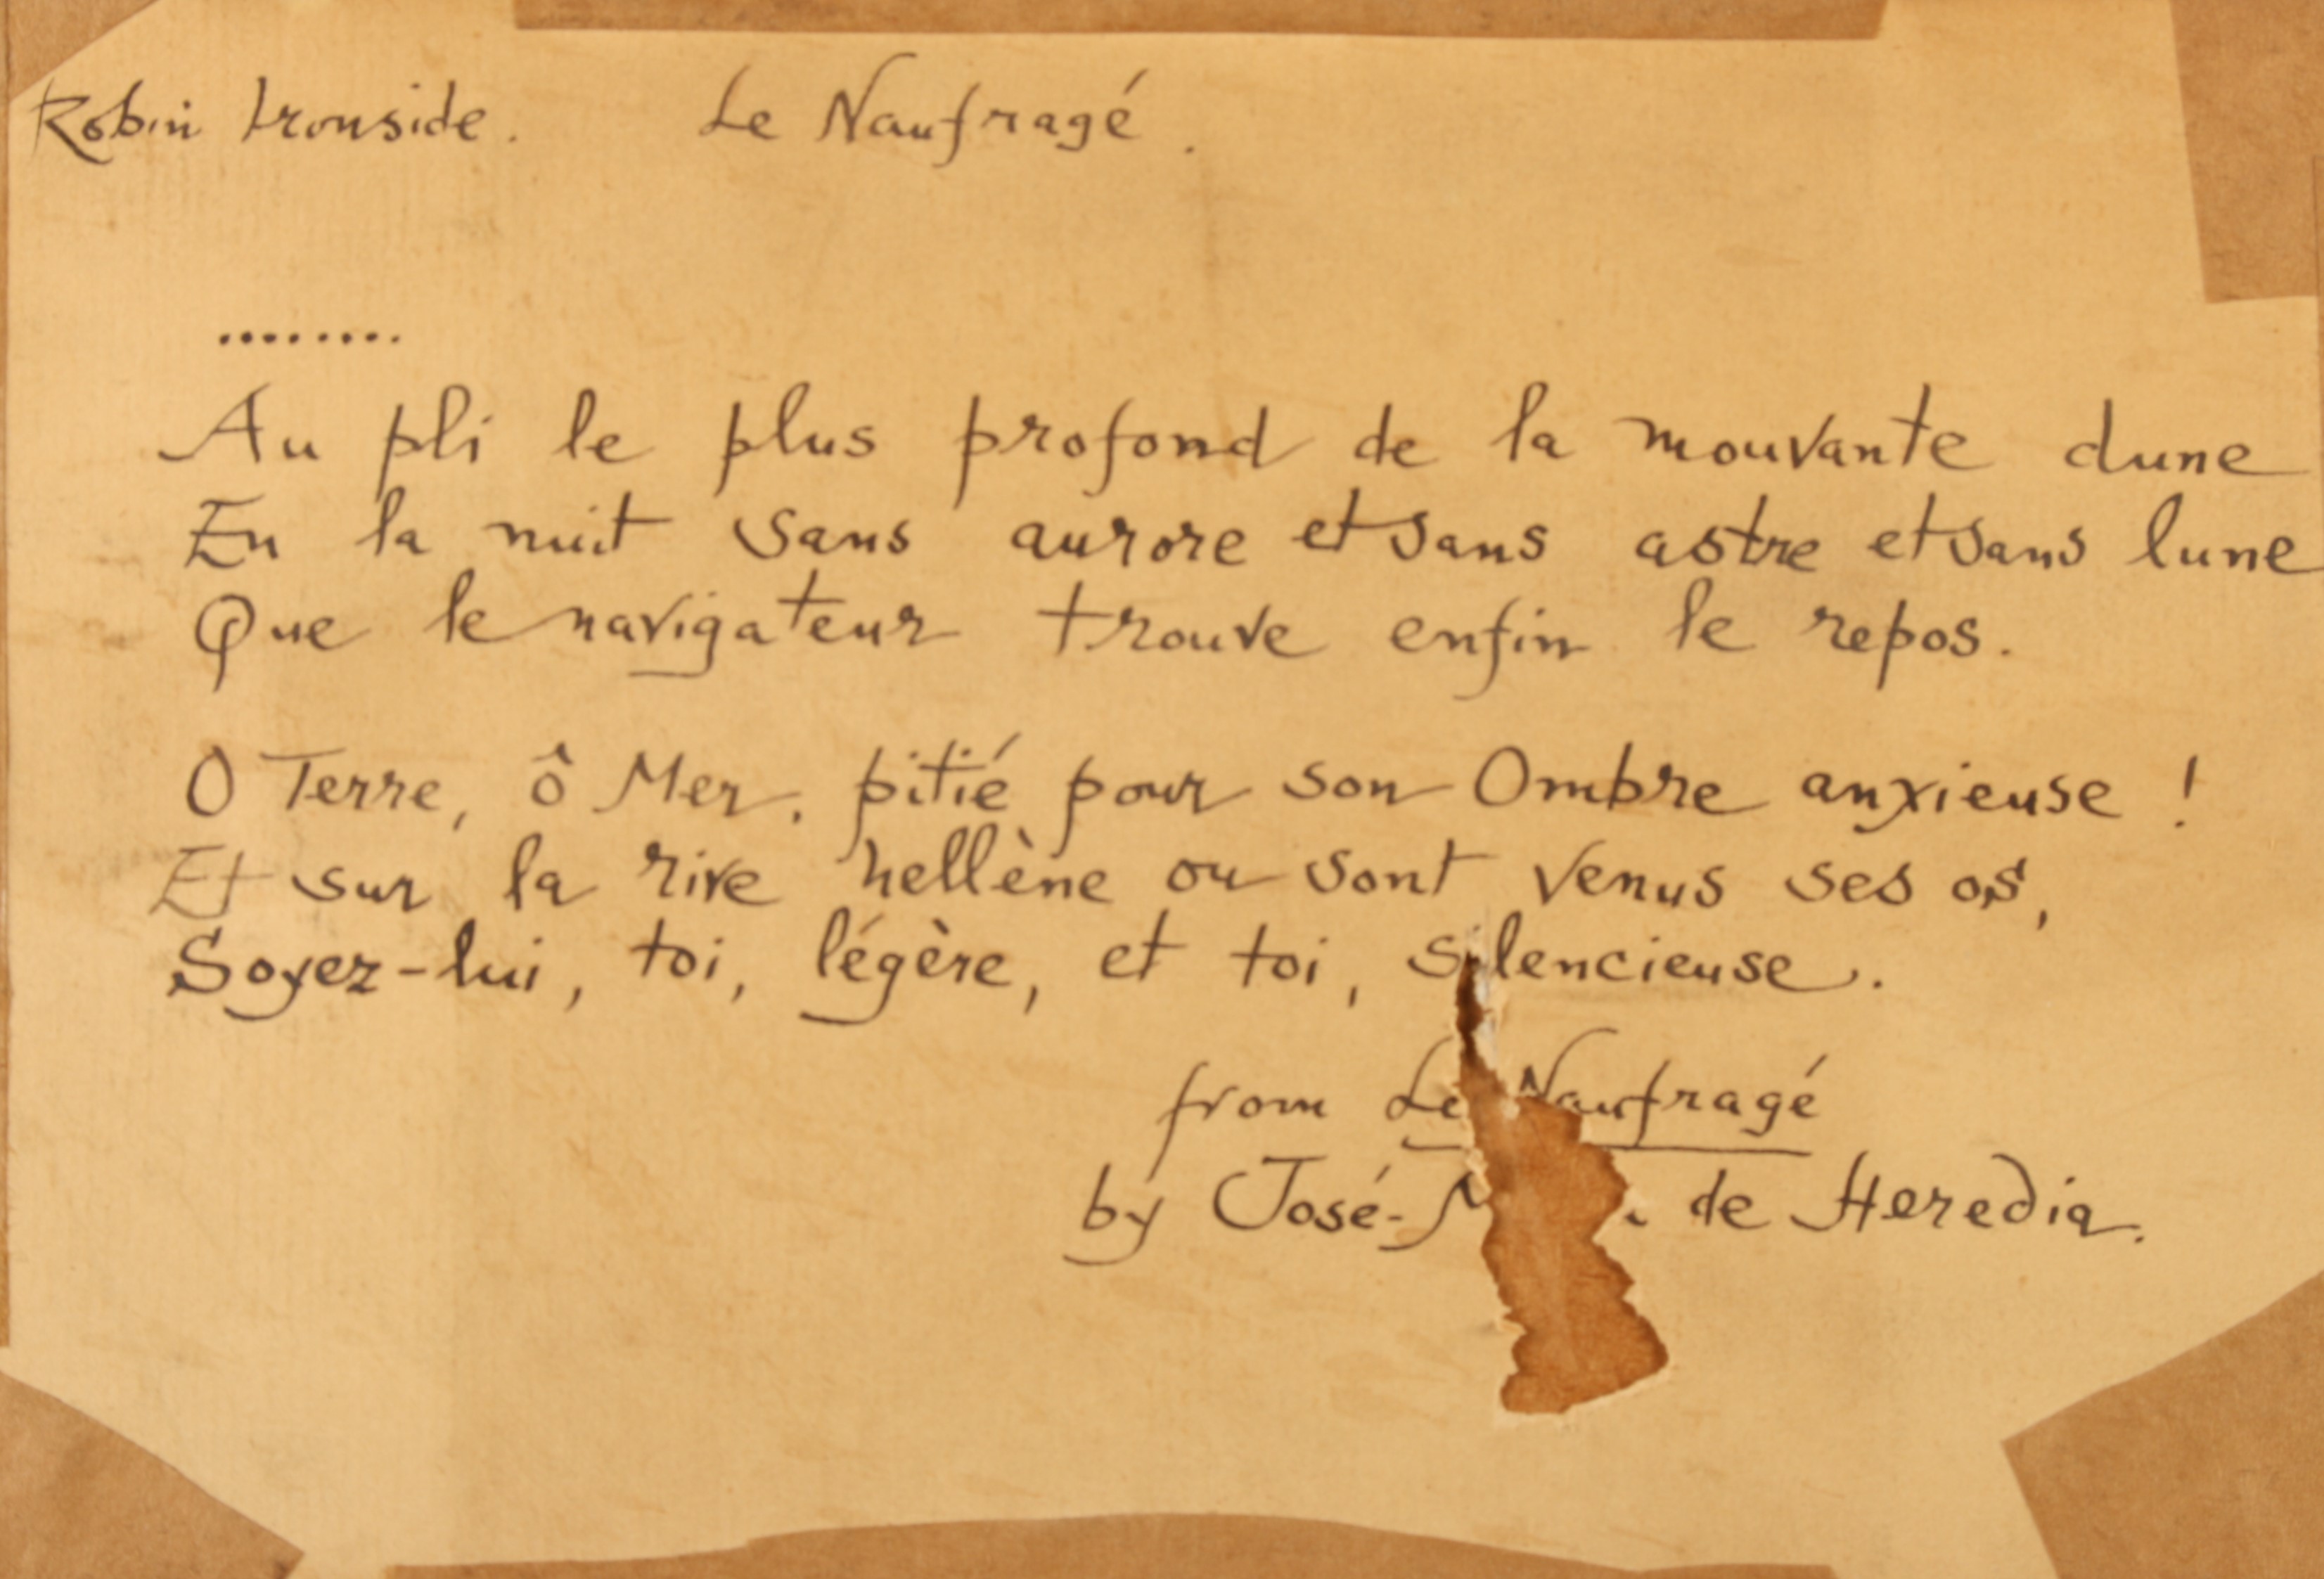 Robin Ironside. Le Naufragé.
........
Au pli le plus profond de la mouvante dune
En la nuit sans aurore et sans astre et sans lune
Que le navigateur trouve enfin le repos.
O Terre, ô Mer, pitié pour son Ombre anxieuse !
Et sur la rive hellène ou sont venus ses os,
Soyez-lui, toi, légère, et toi, silencieuse.
from Le Naufragé
by José- de Heredia.